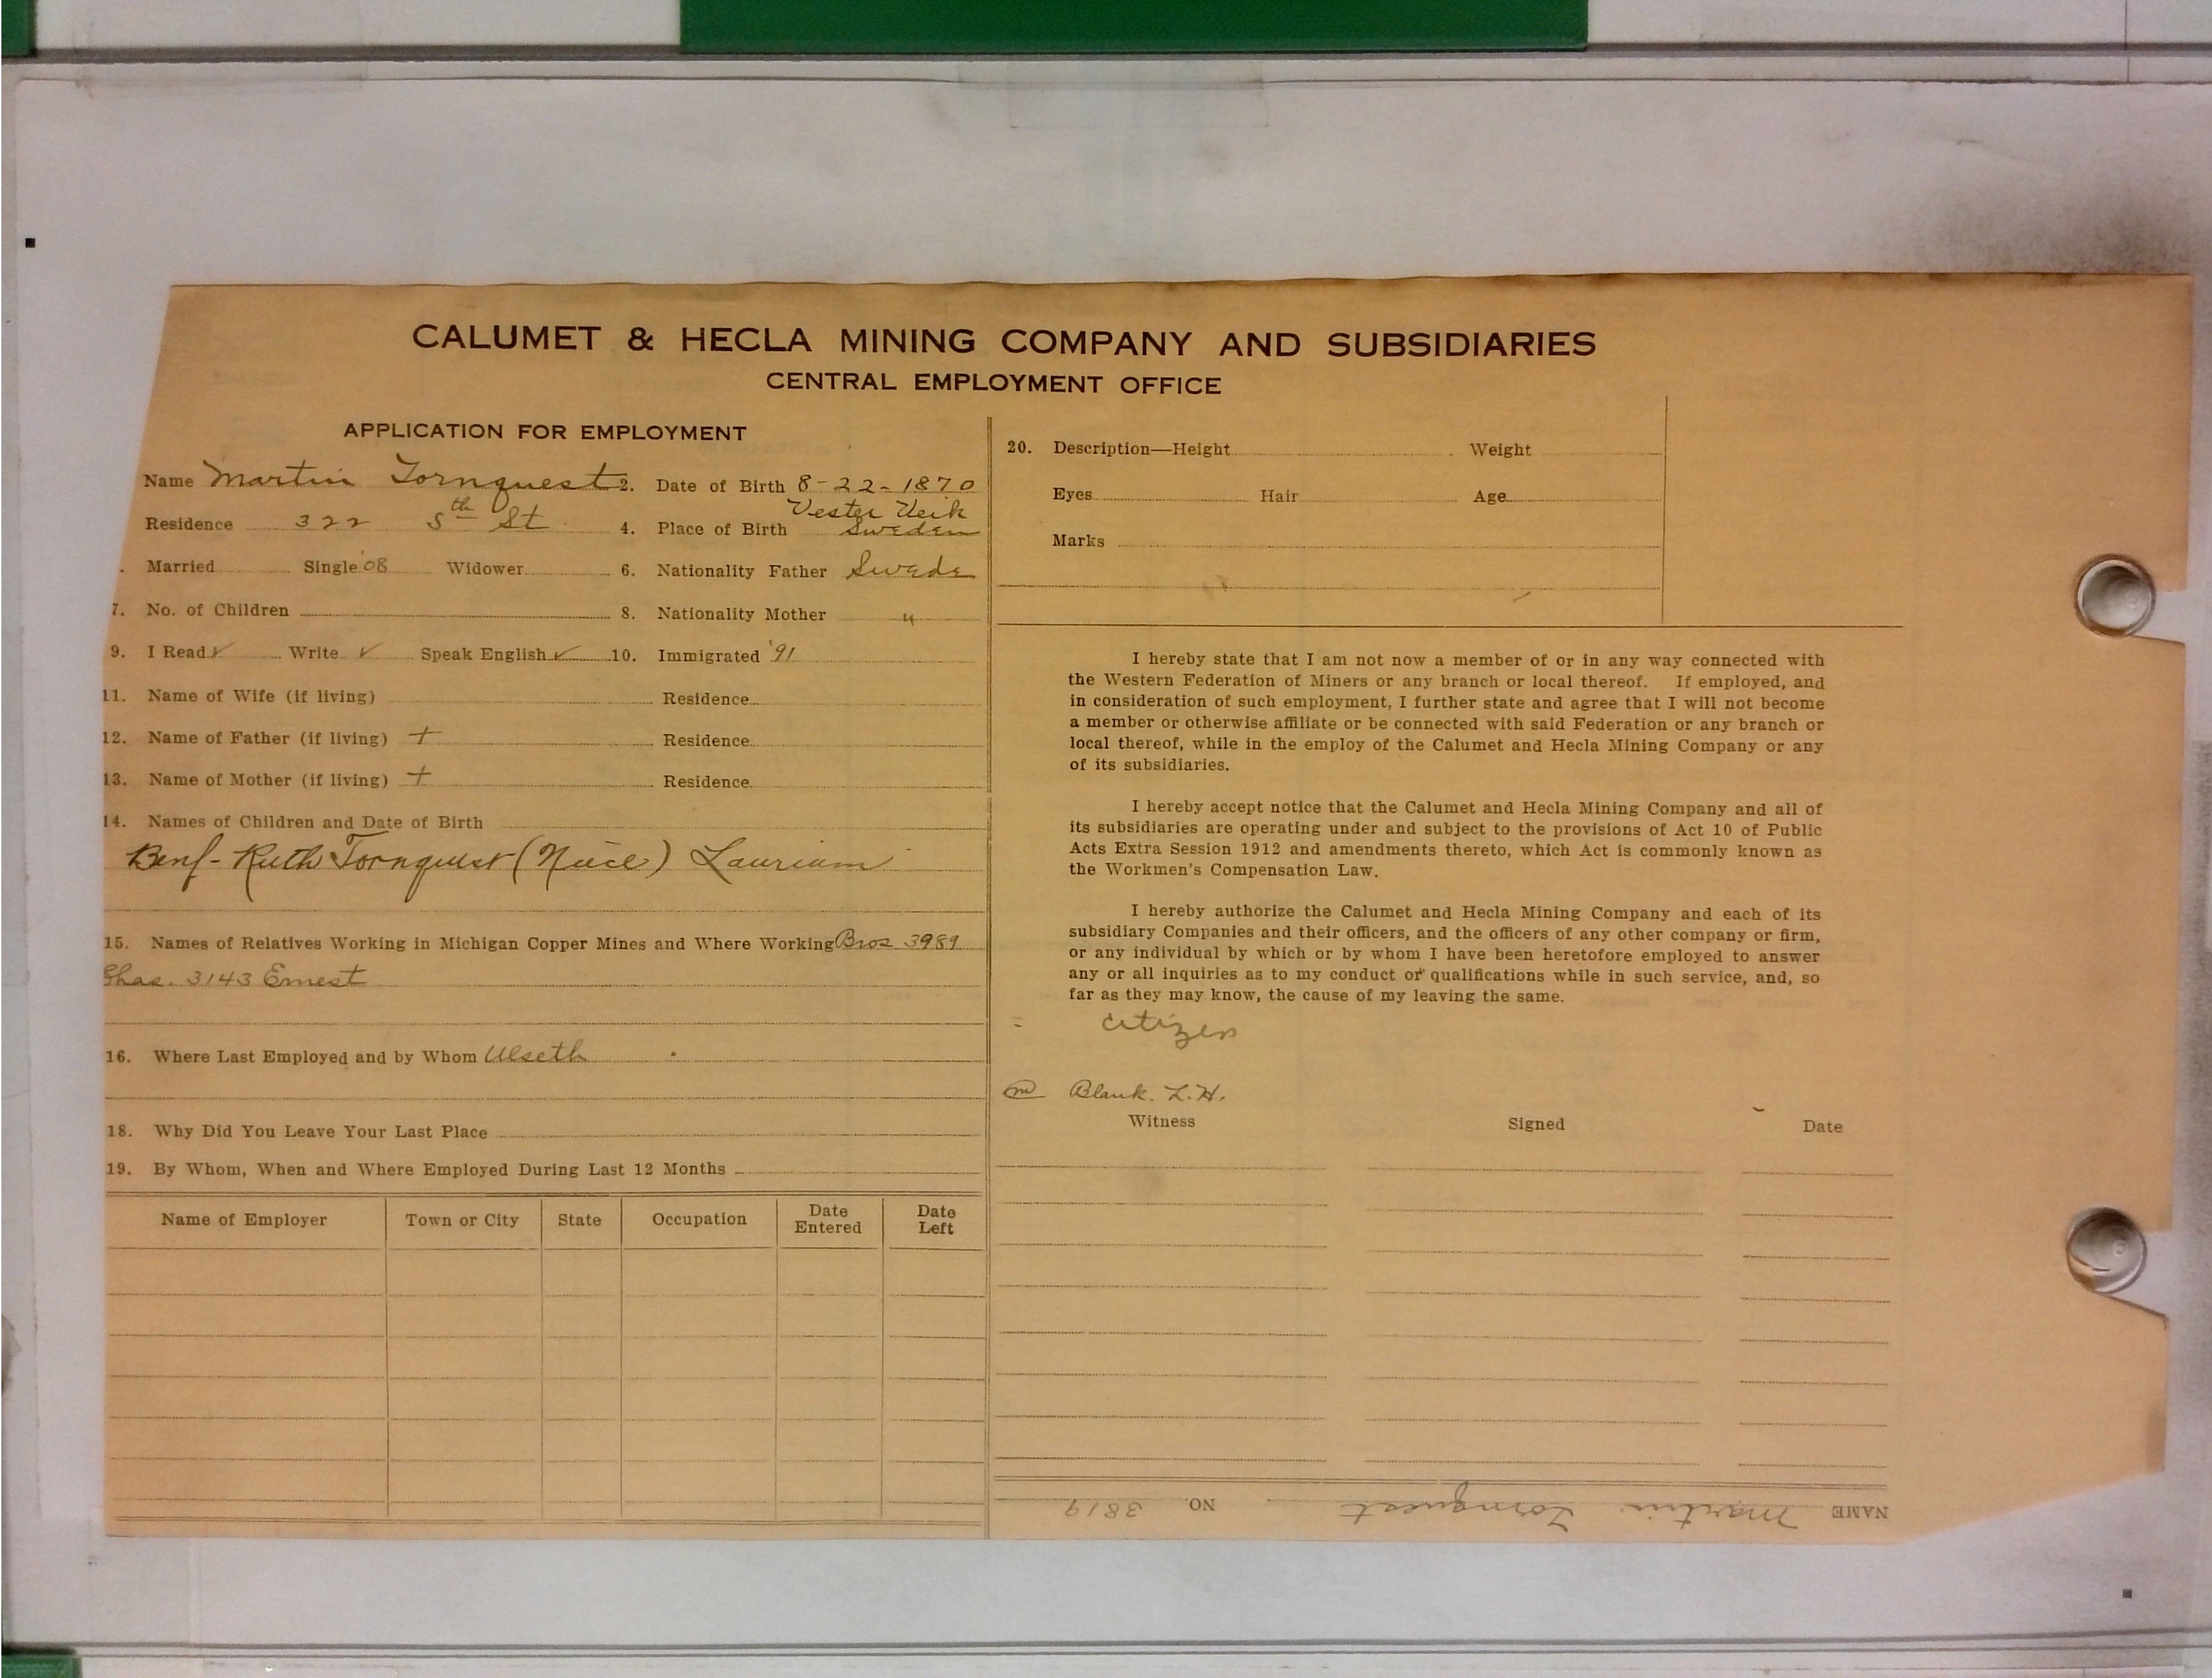 CALUMET & HECLA MINING COMPANY AND SUBSIDIARIES
CENTRAL EMPLOYMENT OFFICE
APPLICATION FOR EMPLOYMENT
Name Martin Tornquest 2. Date of Birth 8-22-1870
Residence 322 5th St 4. Place of Birth Vester Sweden
Married Single '08 Widower 6. Nationality Father Swede
7. No. of Children 8. Nationality Mother "
9. I Read ✓ Write ✓ Speak English ✓ 10. Immigrated '91
11. Name of Wife (if living) Residence
12. Name of Father (if living) + Residence
13. Name of Mother (if living) + Residence
14. Names of Children and Date of Birth
Benf- Ruth Tornquist (Niece) Laurium
15. Names of Relatives Working in Michigan Copper Mines and Where Working Bros 3989
Chas. 3143 Ernest
16. Where Last Employed and by Whom Ulseth
18. Why Did You Leave Your Last Place
19. By Whom, When and Where Employed During Last 12 Months
Name of Employer Town or City State Occupation Date Entered Date Left
20. Description—Height Weight
Eyes Hair Age
Marks
I hereby state that I am not now a member of or in any way connected with
the Western Federation of Miners or any branch or local thereof. If employed, and
in consideration of such employment, I further state and agree that I will not become
a member or otherwise affiliate or be connected with said Federation or any branch or
local thereof, while in the employ of the Calumet and Hecla Mining Company or any
of its subsidiaries.
I hereby accept notice that the Calumet and Hecla Mining Company and all of
its subsidiaries are operating under and subject to the provisions of Act 10 of Public
Acts Extra Session 1912 and amendments thereto, which Act is commonly known as
the Workmen's Compensation Law.
I hereby authorize the Calumet and Hecla Mining Company and each of its
subsidiary Companies and their officers, and the officers of any other company or firm,
or any individual by which or by whom I have been heretofore employed to answer
any or all inquiries as to my conduct or qualifications while in such service, and, so
far as they may know, the cause of my leaving the same.
citizen
m Blank. L.H.
Witness Signed Date
NAME Martin Tornquest NO. 3819